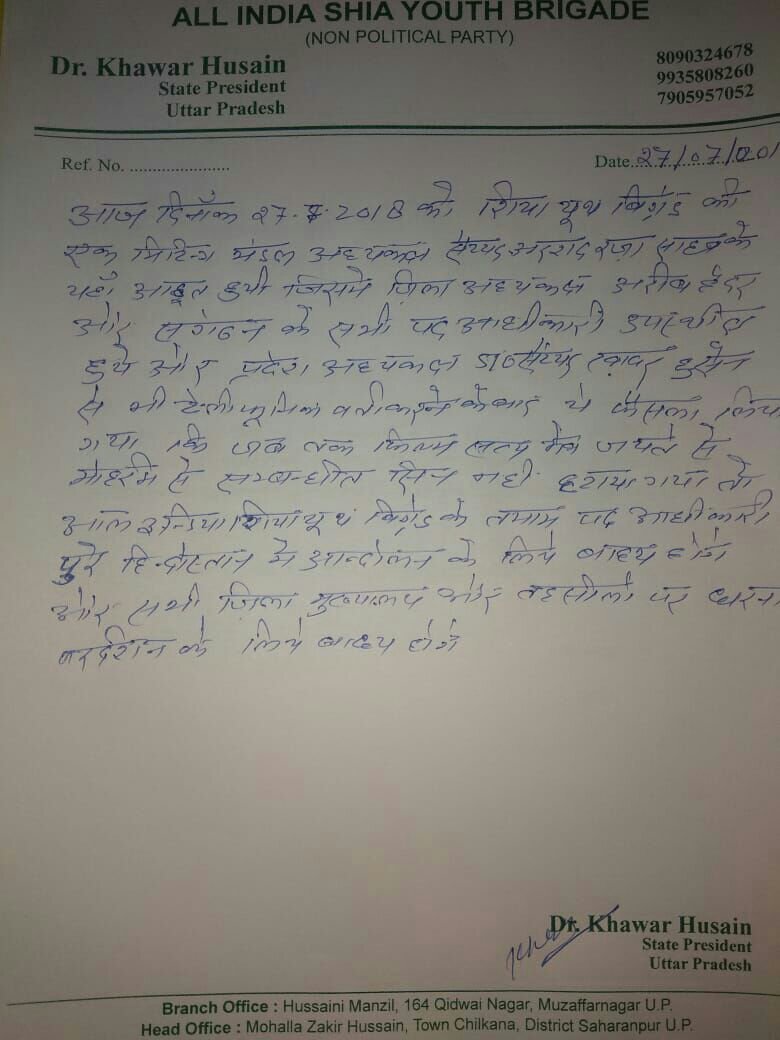 ALL INDIA SHIA YOUTH BRIGADE
(NON POLITICAL PARTY)
Dr. Khawar Husain
State President
Uttar Pradesh
8090324678
9935808260
7905957052
Ref. No. ......................
Date. 27/07/201
आज दिनाँक 27-7-2018 को शिया यूथ बिग्रेड की
एक मिटिंग मंडल अध्यकक्ष सैय्यद अरशद रज़ा साहब के
यहाँ आहूत हुयी जिसमे ज़िला अध्यकक्ष अरीब हैदर
और संगठन के सभी पद आधीकारी उपस्थीत
हुये और प्रदेश अध्यकक्ष डा० सैय्यद खावर हुसैन
से भी टेलीफूनिक करने के बाद ये फैसला लिया
गया कि जब तक फिल्म सत्य मेव जयते से
मोहर्रम से सम्बन्धीत सिन नही हटाया गया तो
आल इन्डिया शिया यूथ बिग्रेड के तमाम पद आधीकारी
पुरे हिन्दोस्तान मे आन्दोलन के लिये बाध्य होगे
और सभी ज़िला मुख्यालय और तहसीलो पर धरना
परदर्शन के लिये बाध्य होगे
Dr. Khawar Husain
State President
Uttar Pradesh
Branch Office : Hussaini Manzil, 164 Qidwai Nagar, Muzaffarnagar U.P.
Head Office : Mohalla Zakir Hussain, Town Chilkana, District Saharanpur U.P.